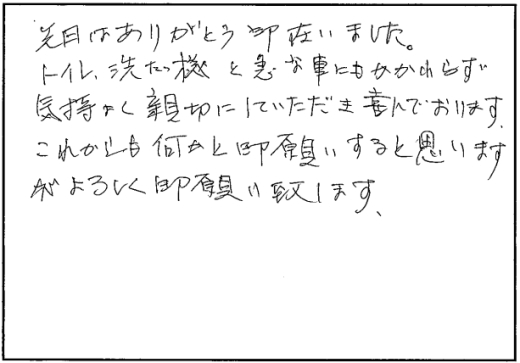 先日はありがとう御在いました。
トイレ、洗たっ機と急な事にもかかわらず
気持よく親切にしていただき喜んでおります。
これからも何かと御願いすると思います
がよろしく御願い致します、